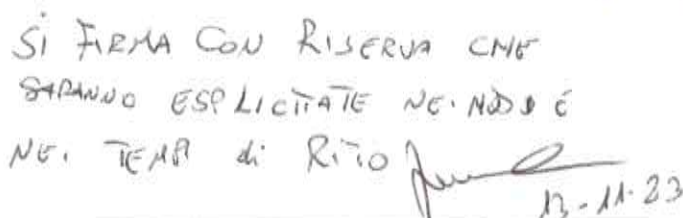 SI FIRMA CON RISERVA CHE
SARANNO ESPLICITATE NEI MODI E
NEI TEMPI di RITO
13-11-23